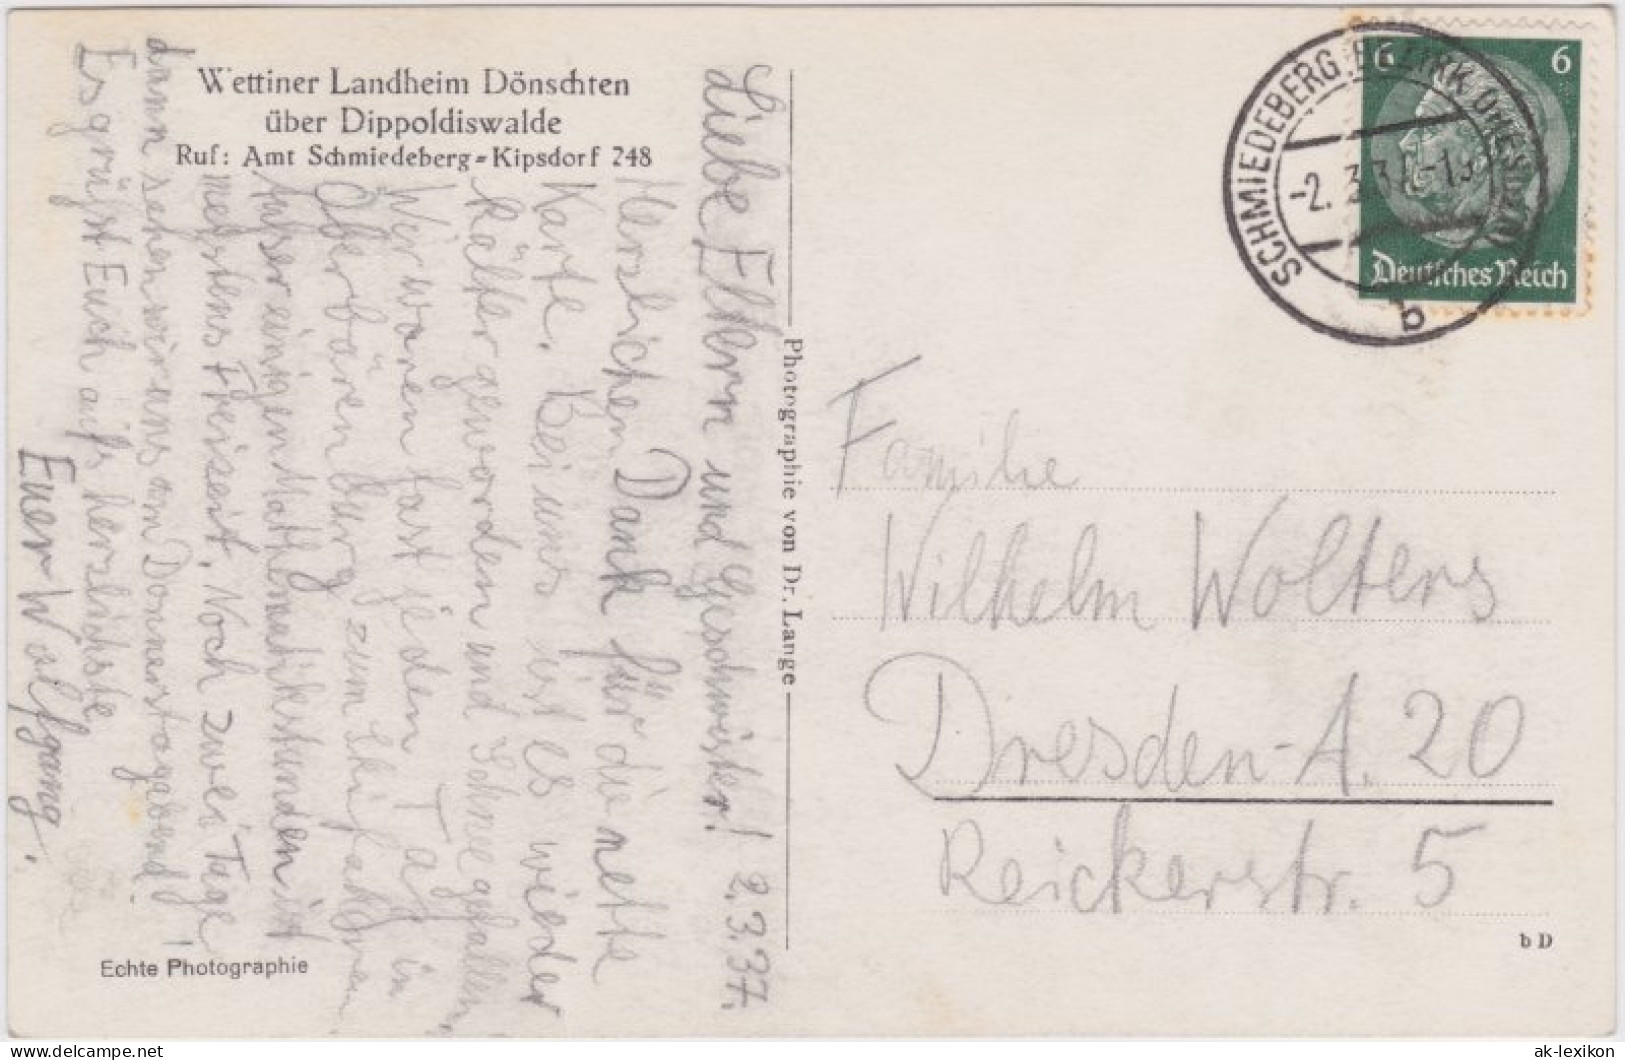 Wettiner Landheim Dönschten
über Dippoldiswalde
Ruf: Amt Schmiedeberg=Kipsdorf 248
Liebe Eltern und Geschwister! 2.3.37.
Herzlichen Dank für die nette
Karte. Bei uns ist es wieder
kälter geworden und Schnee gefallen.
Wir waren fast jeden Tag in
Oberbärenburg zum Schifahren
Außer einigen Mathematikstunden ist
meistens Freizeit. Noch zwei Tage
dann sehen wir uns am Donnerstagabend!
Es grüßt Euch aufs herzlichste
Euer Wolfgang.
Echte Photographie
Photographie von Dr. Lange
SCHMIEDEBERG BEZIRK DRESDEN
-2. 3. 37
b
6 6
Deutsches Reich
Familie
Wilhelm Wolters
Dresden-A. 20
Reickerstr. 5
b D
ak-lexikon
delcampe.net